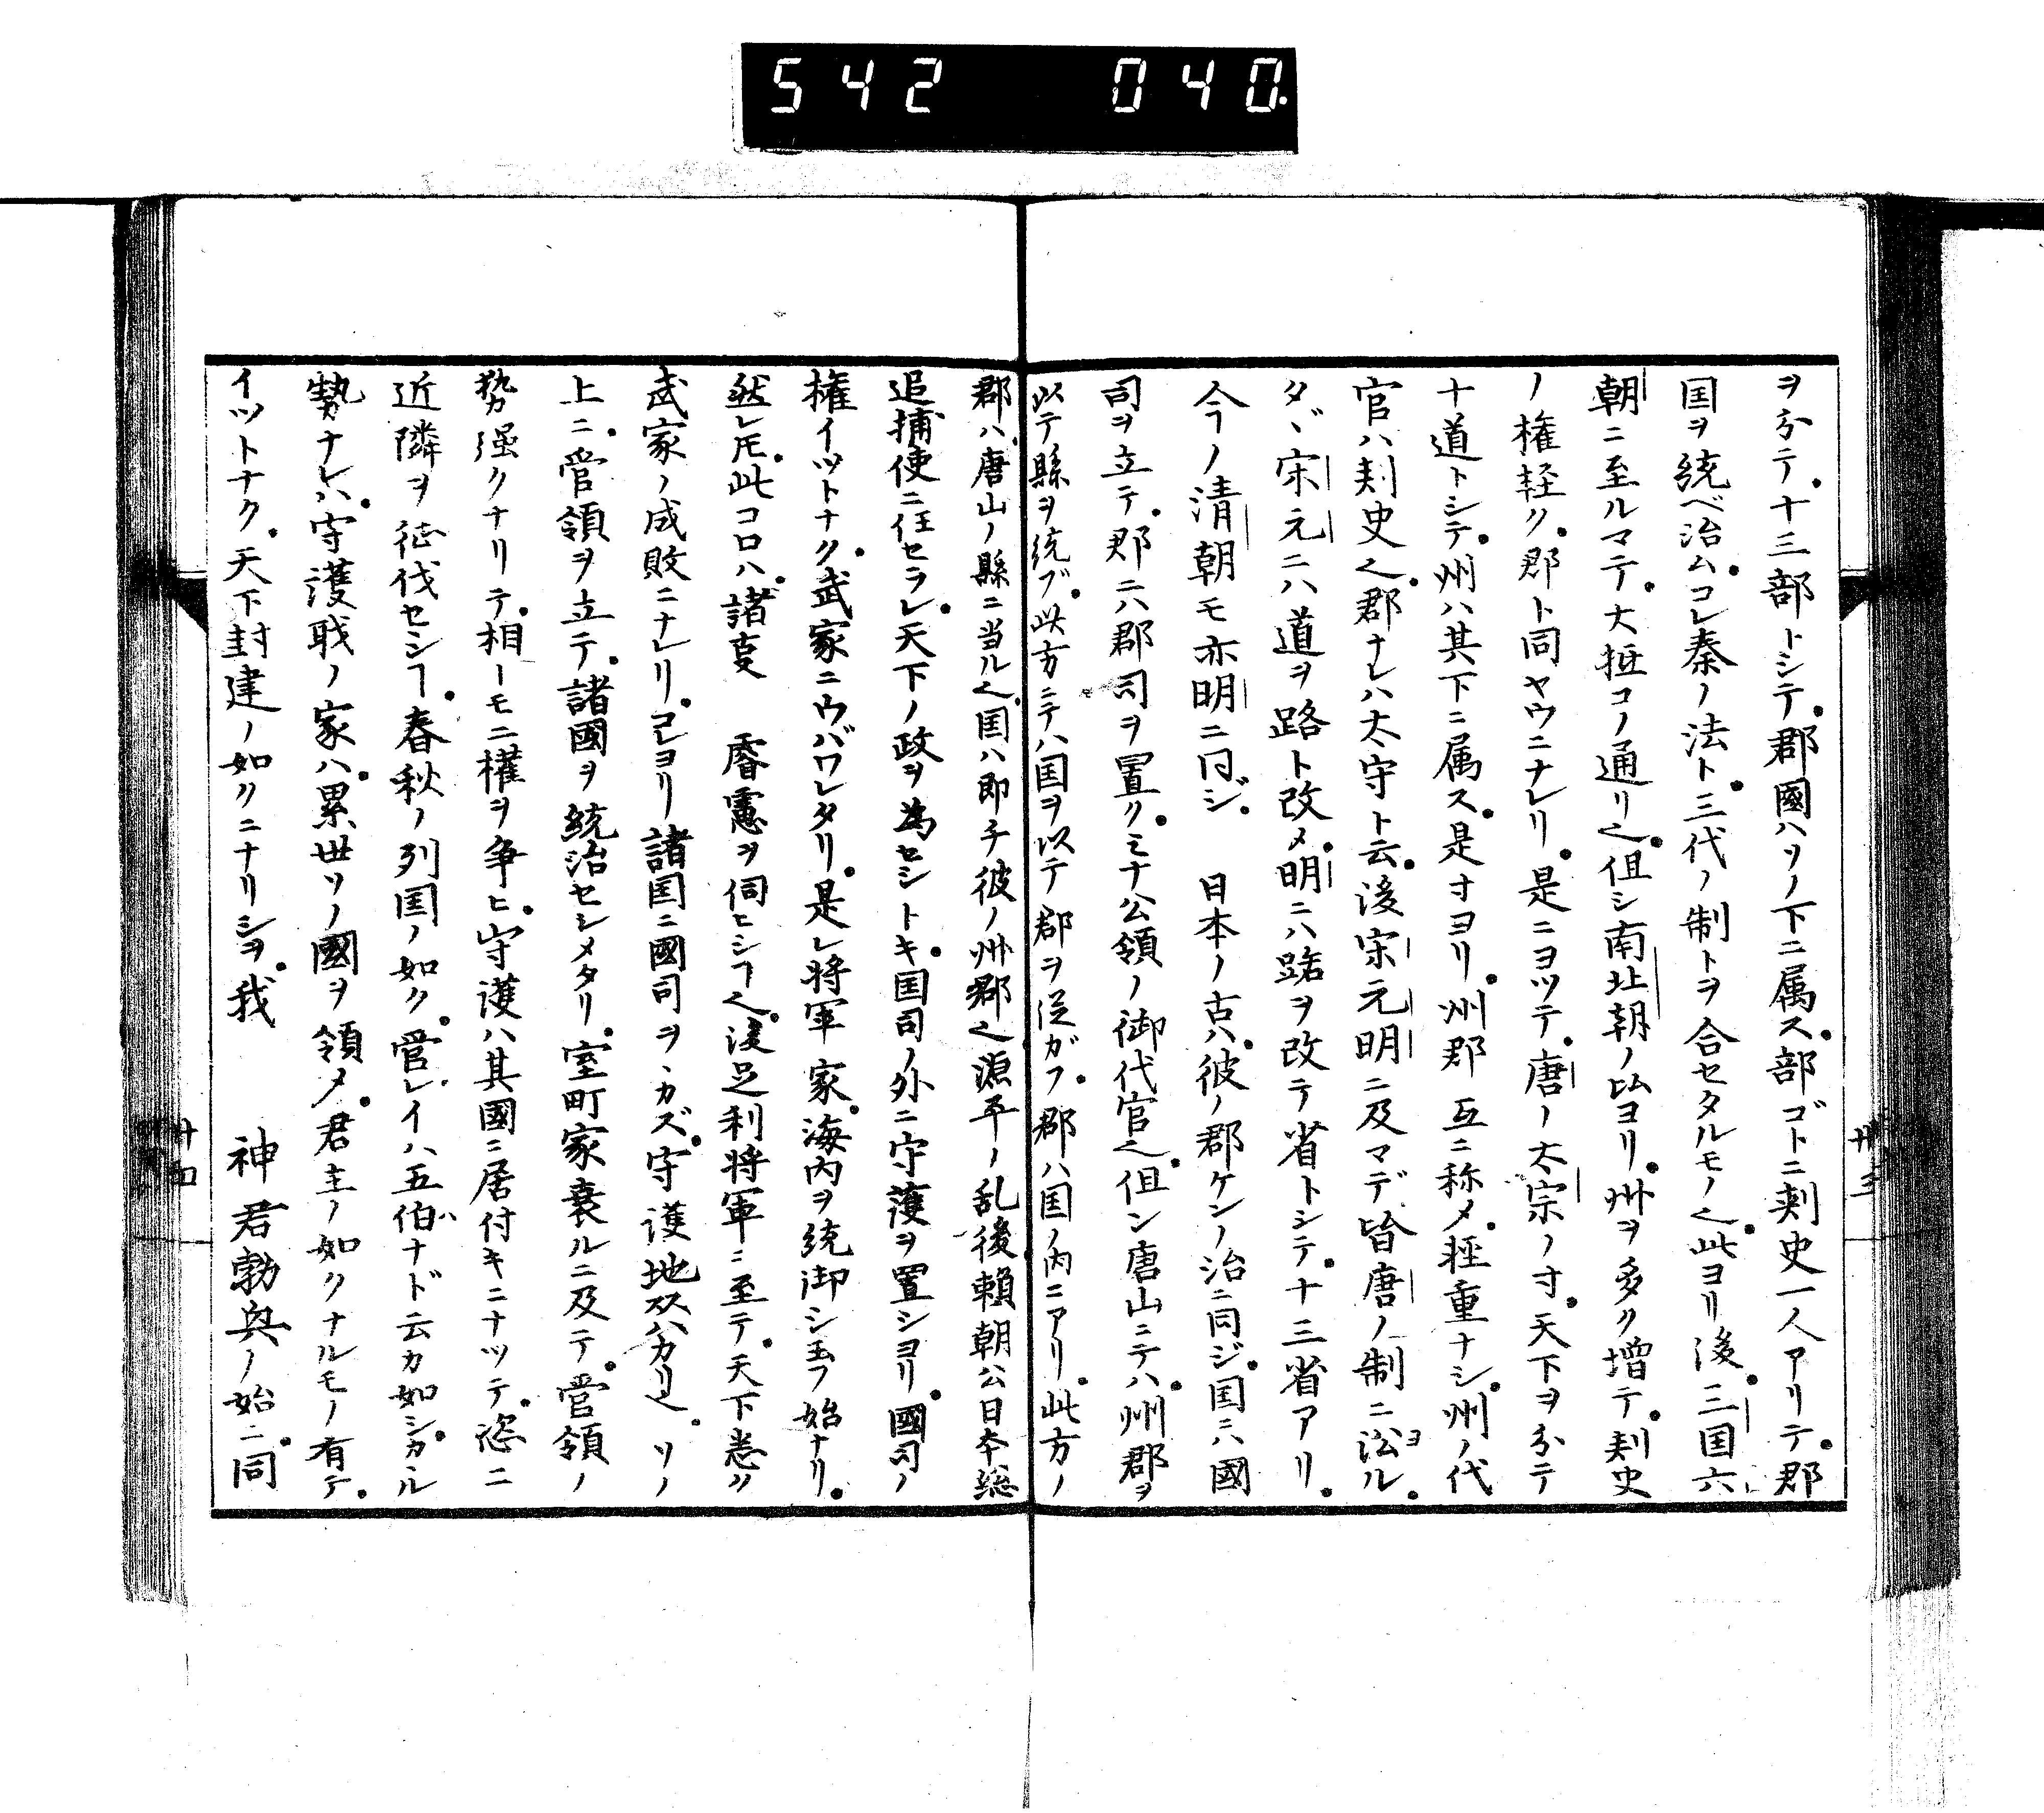 542 040.
ヲ分テ。十三部トシテ。郡國ハソノ下ニ属ス。部ゴトニ刺史一人アリテ。郡
国ヲ統ベ治ム。コレ秦ノ法ト。三代ノ制トヲ合セタルモノ也。此ヨリ後。三国六
朝ニ至ルマテ。大抵コノ通リ也。但シ南北朝ノ比ヨリ。州ヲ多ク増テ。刺史
ノ権軽ク。郡ト同ヤウニナレリ。是ニヨツテ。唐ノ太宗ノ寸。天下ヲ分テ
十道トシテ。州ハ其下ニ属ス。是寸ヨリ。州郡互ニ称メ。軽重ナシ。州ノ代
官ハ刺史也。郡ナレハ太守ト云。後宋元明ニ及マデ皆唐ノ制ニ沿ル。
タヾ宋元ニハ道ヲ路ト改メ。明ニハ路ヲ改テ省トシテ。十三省アリ。
今ノ清朝モ亦明ニ同ジ。日本ノ古ハ。彼ノ郡ケンノ治ニ同ジ。国ニハ國
司ヲ立テ。郡ニハ郡司ヲ置ク。ミナ公領ノ御代官也。但シ唐山ニテハ。州郡ヲ
以テ縣ヲ統ブ。此方ニテハ国ヲ以テ郡ヲ従ガフ。郡ハ国ノ内ニアリ。此方ノ
郡ハ唐山ノ縣ニ当ル也。国ハ即チ彼ノ州郡也源平ノ乱後。頼朝公日本総
追捕使ニ任セラレ。天下ノ政ヲ為セシトキ。国司ノ外ニ守護ヲ置シヨリ。國司ノ
権イツトナク。武家ニウバワレタリ。是レ将軍家。海内ヲ統御シ玉フ始ナリ。
然レ𪜈。此コロハ。諸事 睿慮ヲ伺ヒシヿ也。後足利将軍ニ至テ。天下悉ク
武家ノ成敗ニナレリ。コレヨリ諸国ニ國司ヲヽカズ。守護地頭ハカリ也。ソノ
上ニ。管領ヲ立テ。諸國ヲ統治セシメタリ。室町家衰ルニ及テ。管領ノ
勢强クナリテ。相トモニ權ヲ争ヒ。守護ハ其國ニ居付キニナツテ。恣ニ
近隣ヲ征伐セシヿ。春秋ノ列国ノ如ク。管レイハ五伯ナド云カ如シ。カヽル
勢ナレハ。守護職ノ家ハ。累世ソノ國ヲ領メ。君主ノ如クナルモノ有テ。
イツトナク。天下封建ノ如クニナリシヲ。我 神君勃興ノ始ニ。同
廿三
廿四